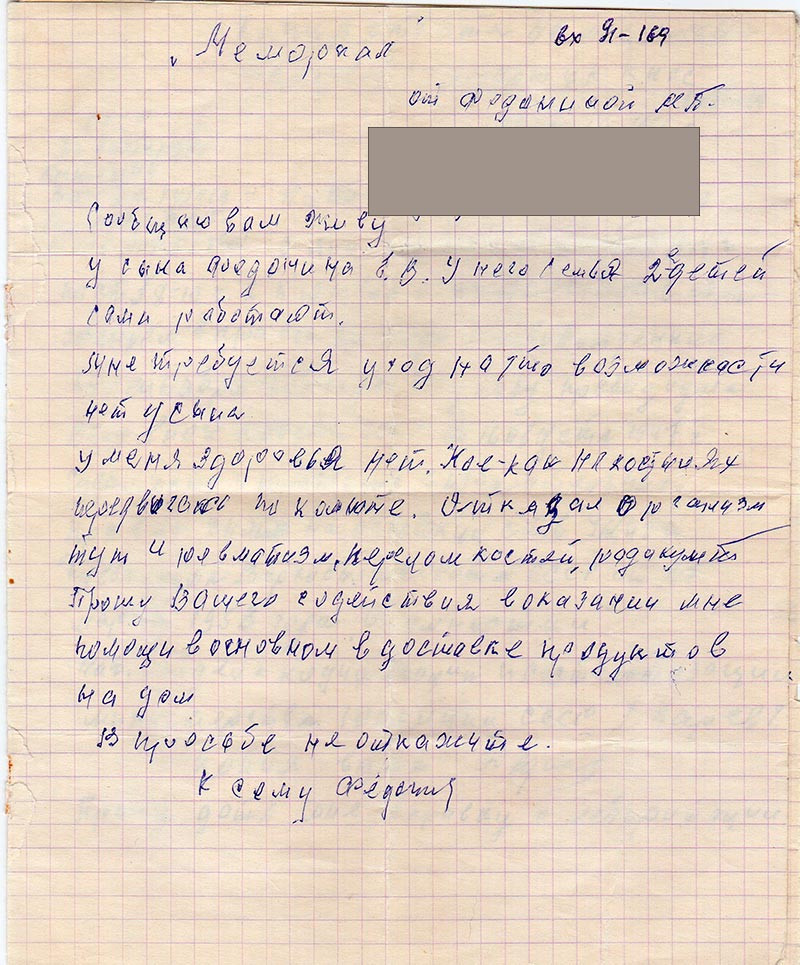 „Мемориал"
вх 91-169
от Федониной М.П.
Сообщаю вам живу
у сына Федонина В.В. У него семья 2е детей
сами работают.
мне требуется уход на это возможности
нет у сына
у меня здоровья нет. Кое-как на костылях
передвигаюсь по комнате. Отказал организм
тут и ревматизм, перелом костей, радикулит
Прошу Вашего содействия в оказании мне
помощи в основном в доставке продуктов
на дом
В просьбе не откажите.
К сему